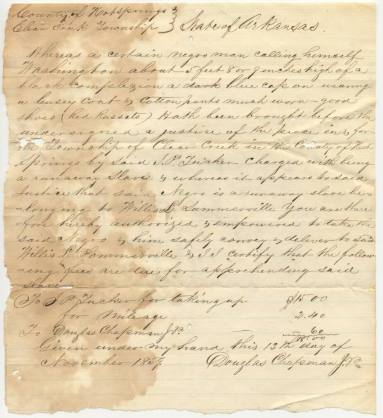 County of Hotsprings }
Clear Creek Township } State of Arkansas.
Whereas a certain negro man calling himself
Washington about 5 feet 8 or 9 inches high of a
black complexion a dark blue cap on waring
a linsey Coat & Cotton pants much worn good
shoes (Red Russets) Hath been brought before the
undersigned a justice of the peace in & for
the Township of Clear Creek in the County of Hot
Springs by said J.P. Tucker Charged with being
a runaway Slave & whereas it appears to said
Justice that said Negro is a runaway slave be
longing to Willis S. Sommerville You are there
fore hereby authorized & empowered to take the
said Negro & him safely convey & deliver to said
Willis S. Sommerville & I certify that the follow
ing fees are due for apprehending said
Slave
To J P Tucker for taking up $15.00
for mileage 2.40
To Douglas Chapman J.P. 60
18.00
Given under my hand this 13th day of
November 1857 Douglas Chapman J.P.